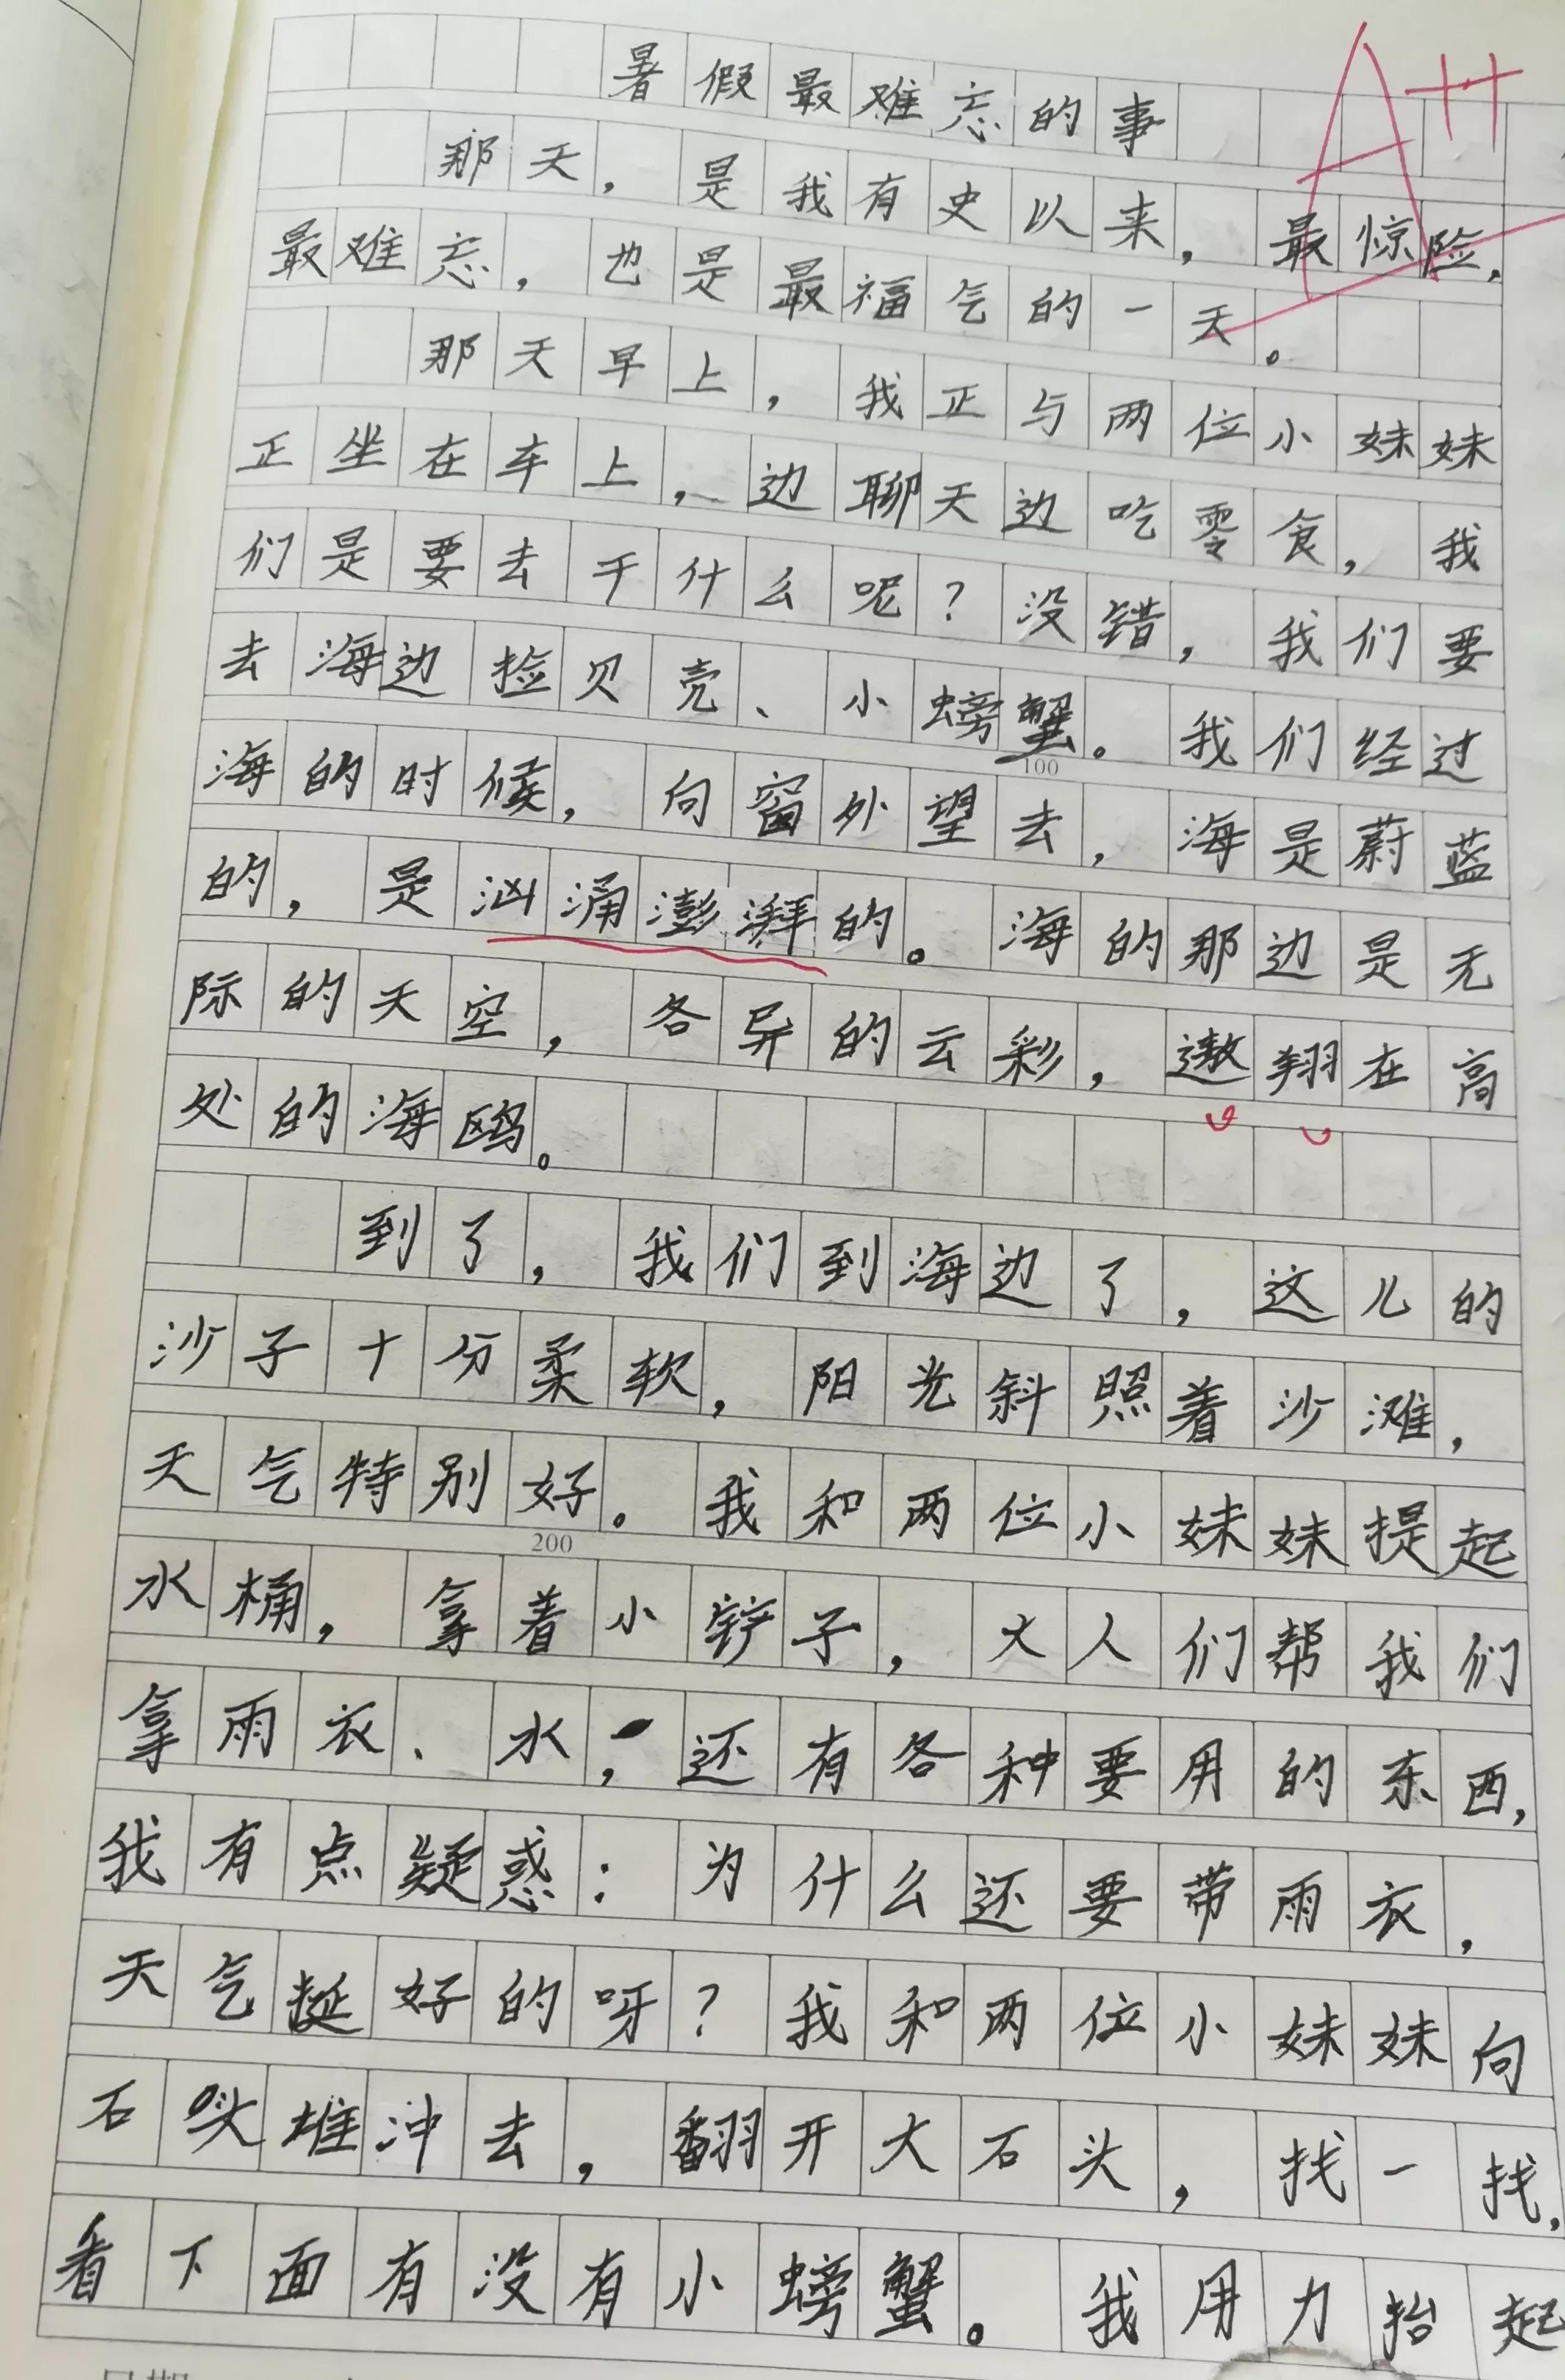 暑假最难忘的事
A++
那天，是我有史以来，最惊险，
最难忘，也是最福气的一天。
那天早上，我正与两位小妹妹
正坐在车上，边聊天边吃零食，我
们是要去干什么呢？没错，我们要
去海边捡贝壳、小螃蟹。我们经过
100
海的时候，向窗外望去，海是蔚蓝
的，是汹涌澎湃的。海的那边是无
际的天空，各异的云彩，遨翔在高
处的海鸥。
到了，我们到海边了，这儿的
沙子十分柔软，阳光斜照着沙滩，
天气特别好。我和两位小妹妹提起
200
水桶，拿着小铲子，大人们帮我们
拿雨衣、水，还有各种要用的东西，
我有点疑惑：为什么还要带雨衣，
天气挺好的呀？我和两位小妹妹向
石头堆冲去，翻开大石头，找一找，
看下面有没有小螃蟹。我用力抬起